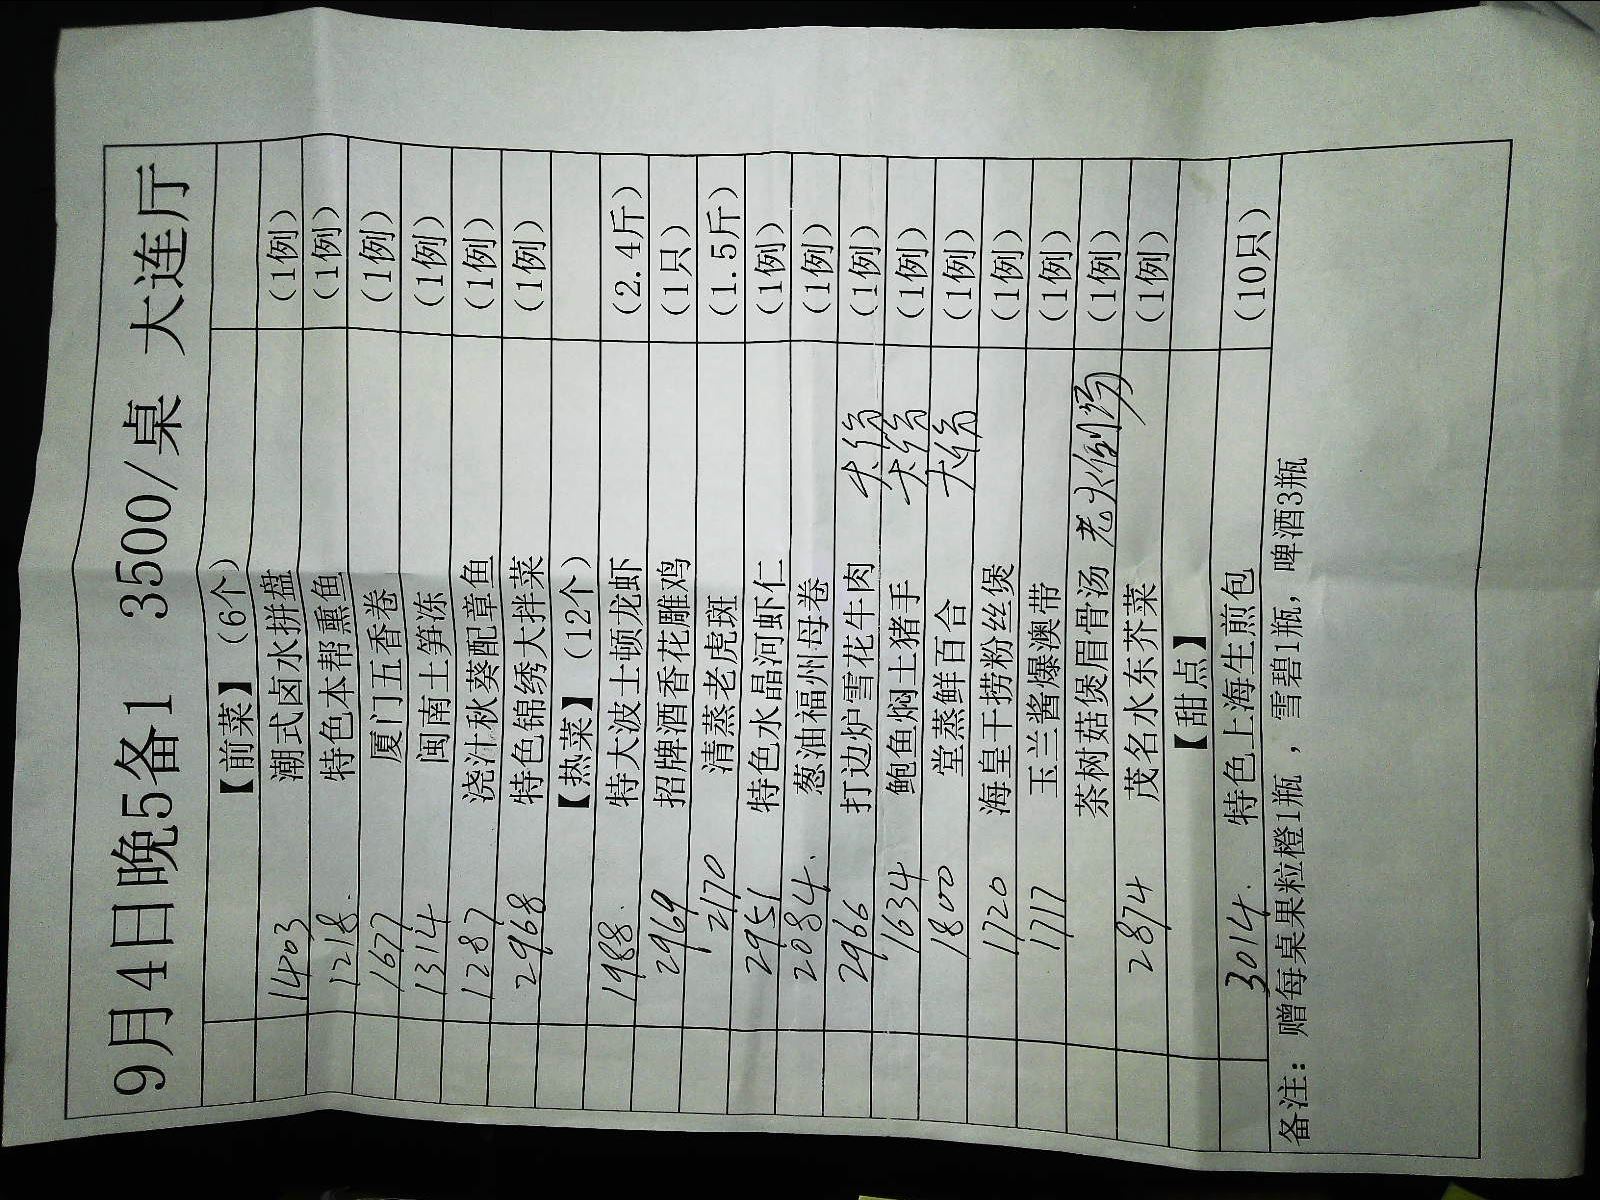 9月4日晚5备1 3500/桌 大连厅
【前菜】（6个）
1403 潮式卤水拼盘 （1例）
1218. 特色本帮熏鱼 （1例）
1677 厦门五香卷 （1例）
1314 闽南土笋冻 （1例）
1287 浇汁秋葵配章鱼 （1例）
2968 特色锦绣大拌菜 （1例）
【热菜】（12个）
1988. 特大波士顿龙虾 （2.4斤）
2969 招牌酒香花雕鸡 （1只）
2170 清蒸老虎斑 （1.5斤）
2951 特色水晶河虾仁 （1例）
2084. 葱油福州母卷 （1例）
2966 打边炉雪花牛肉 大份 （1例）
1634 鲍鱼焖土猪手 大份 （1例）
1800 堂蒸鲜百合 大份 （1例）
1720 海皇干捞粉丝煲 （1例）
1717 玉兰酱爆澳带 （1例）
茶树菇煲眉骨汤 老火例汤 （1例）
2874 茂名水东芥菜 （1例）
【甜点】
3014. 特色上海生煎包 （10只）
备注：赠每桌果粒橙1瓶，雪碧1瓶，啤酒3瓶